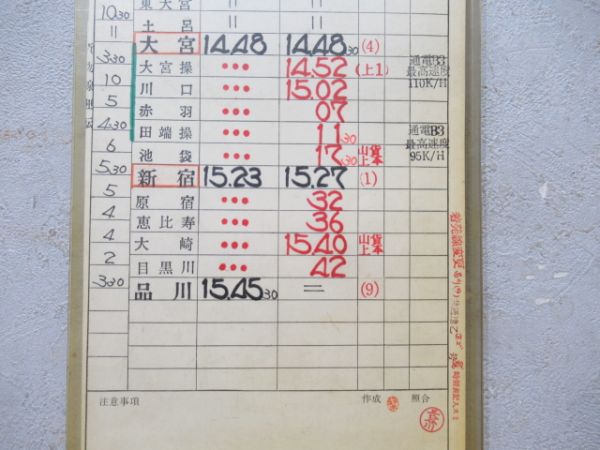 東大宮 〃 〃
10.30 土呂 〃 〃
〃 大宮 14.48 14.48 30 (4)
大宮操 ••• 14.52 (上1) 通電B3 最高速度 110K/H
3.30 川口 ••• 15.02
10 赤羽 ••• 07
5 田端操 ••• 11 30 通電B3 最高速度 95K/H
4.30 池袋 ••• 17 30 山貨 上本
6 新宿 15.23 15.27 (1)
5.30 原宿 ••• 32
5 恵比寿 ••• 36
4 大崎 ••• 15.40 山貨 上本
4 目黒川 ••• 42
2 品川 15.45 30 = (9)
3.30
着発線変更
時刻記入
注意事項 作成 照合